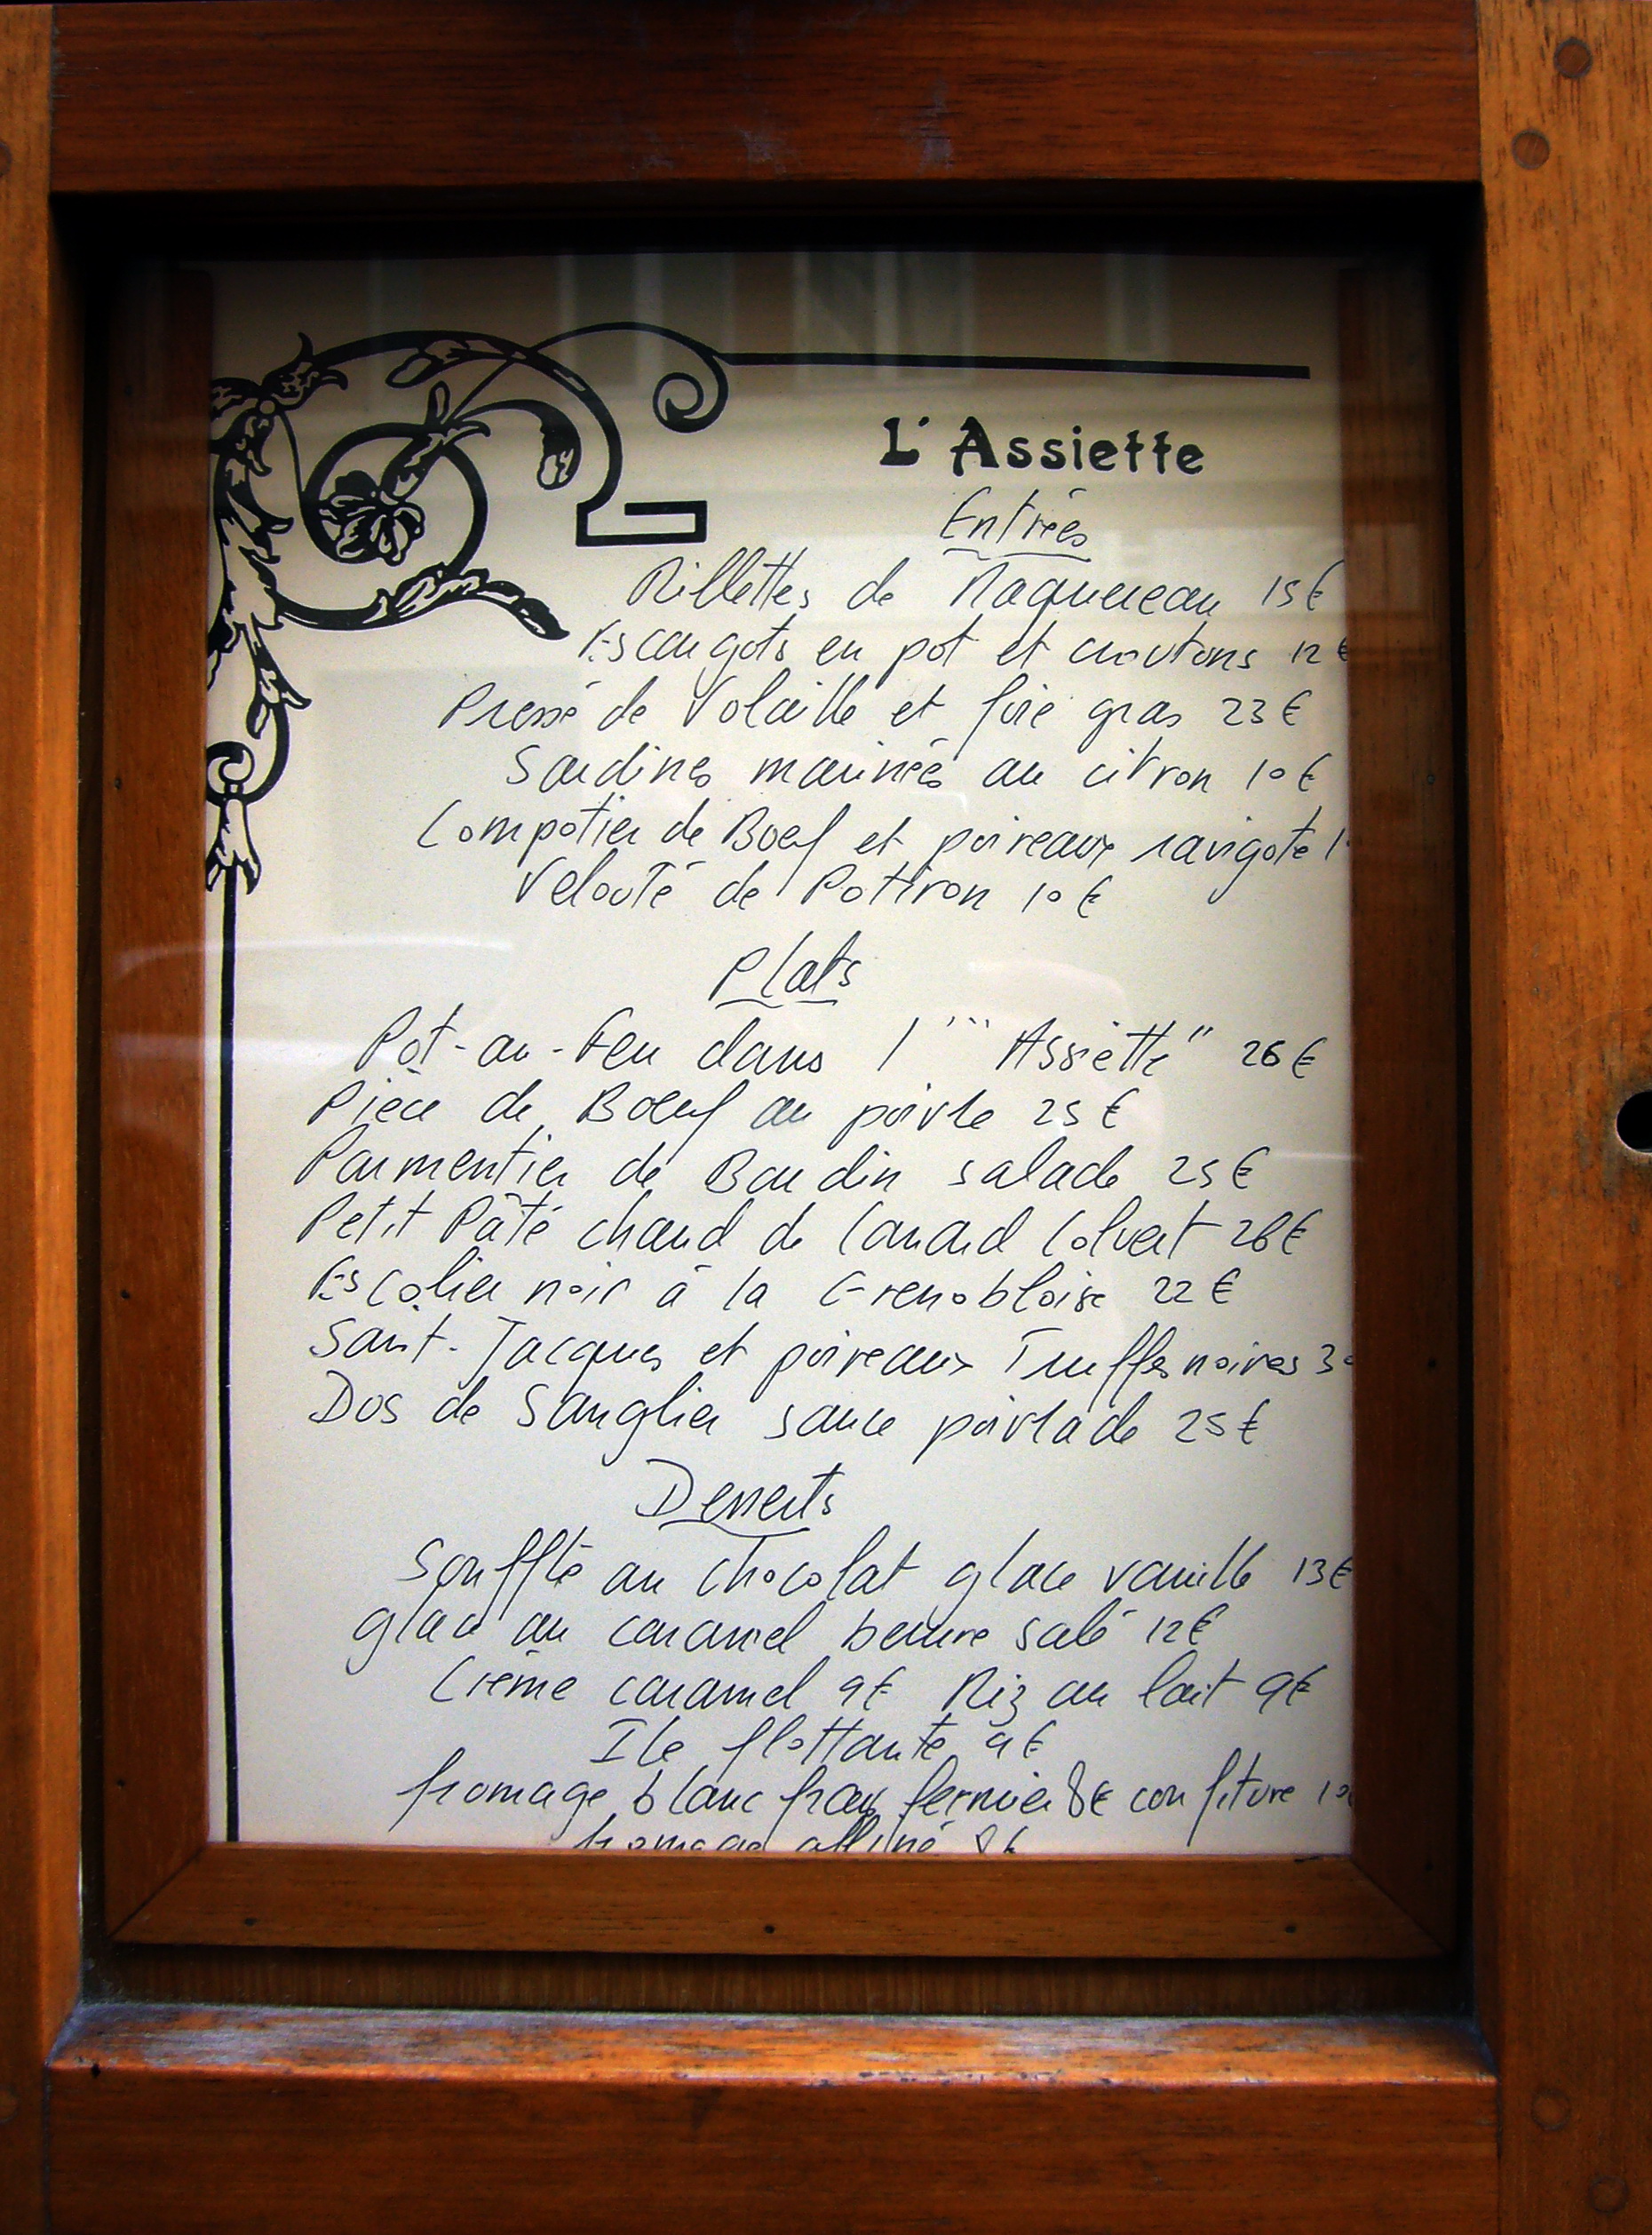 L'Assiette
Entrées
Rillettes de Maquereau 15€
Escargots en pot et croutons 12€
Pressé de Volaille et foie gras 23€
Sardines marinées au citron 10€
Compotier de Boeuf et poireaux ravigote
Velouté de Potiron 10€
Plats
Pot-au-Feu dans l'"Assiette" 26€
Pièce de Boeuf au poivre 25€
Parmentier de Boudin salade 25€
Petit Pâté chaud de Canard Colvert 28€
Escolier noir à la Grenobloise 22€
Saint-Jacques et poireaux Truffes noires
Dos de Sanglier sauce poivrade 25€
Desserts
Soufflé au chocolat glace vanille 13€
glace au caramel beurre salé 12€
Crème caramel 9€ Riz au lait 9€
Ile flottante 9€
fromage blanc frais fermier 8€ confiture
fromage affiné